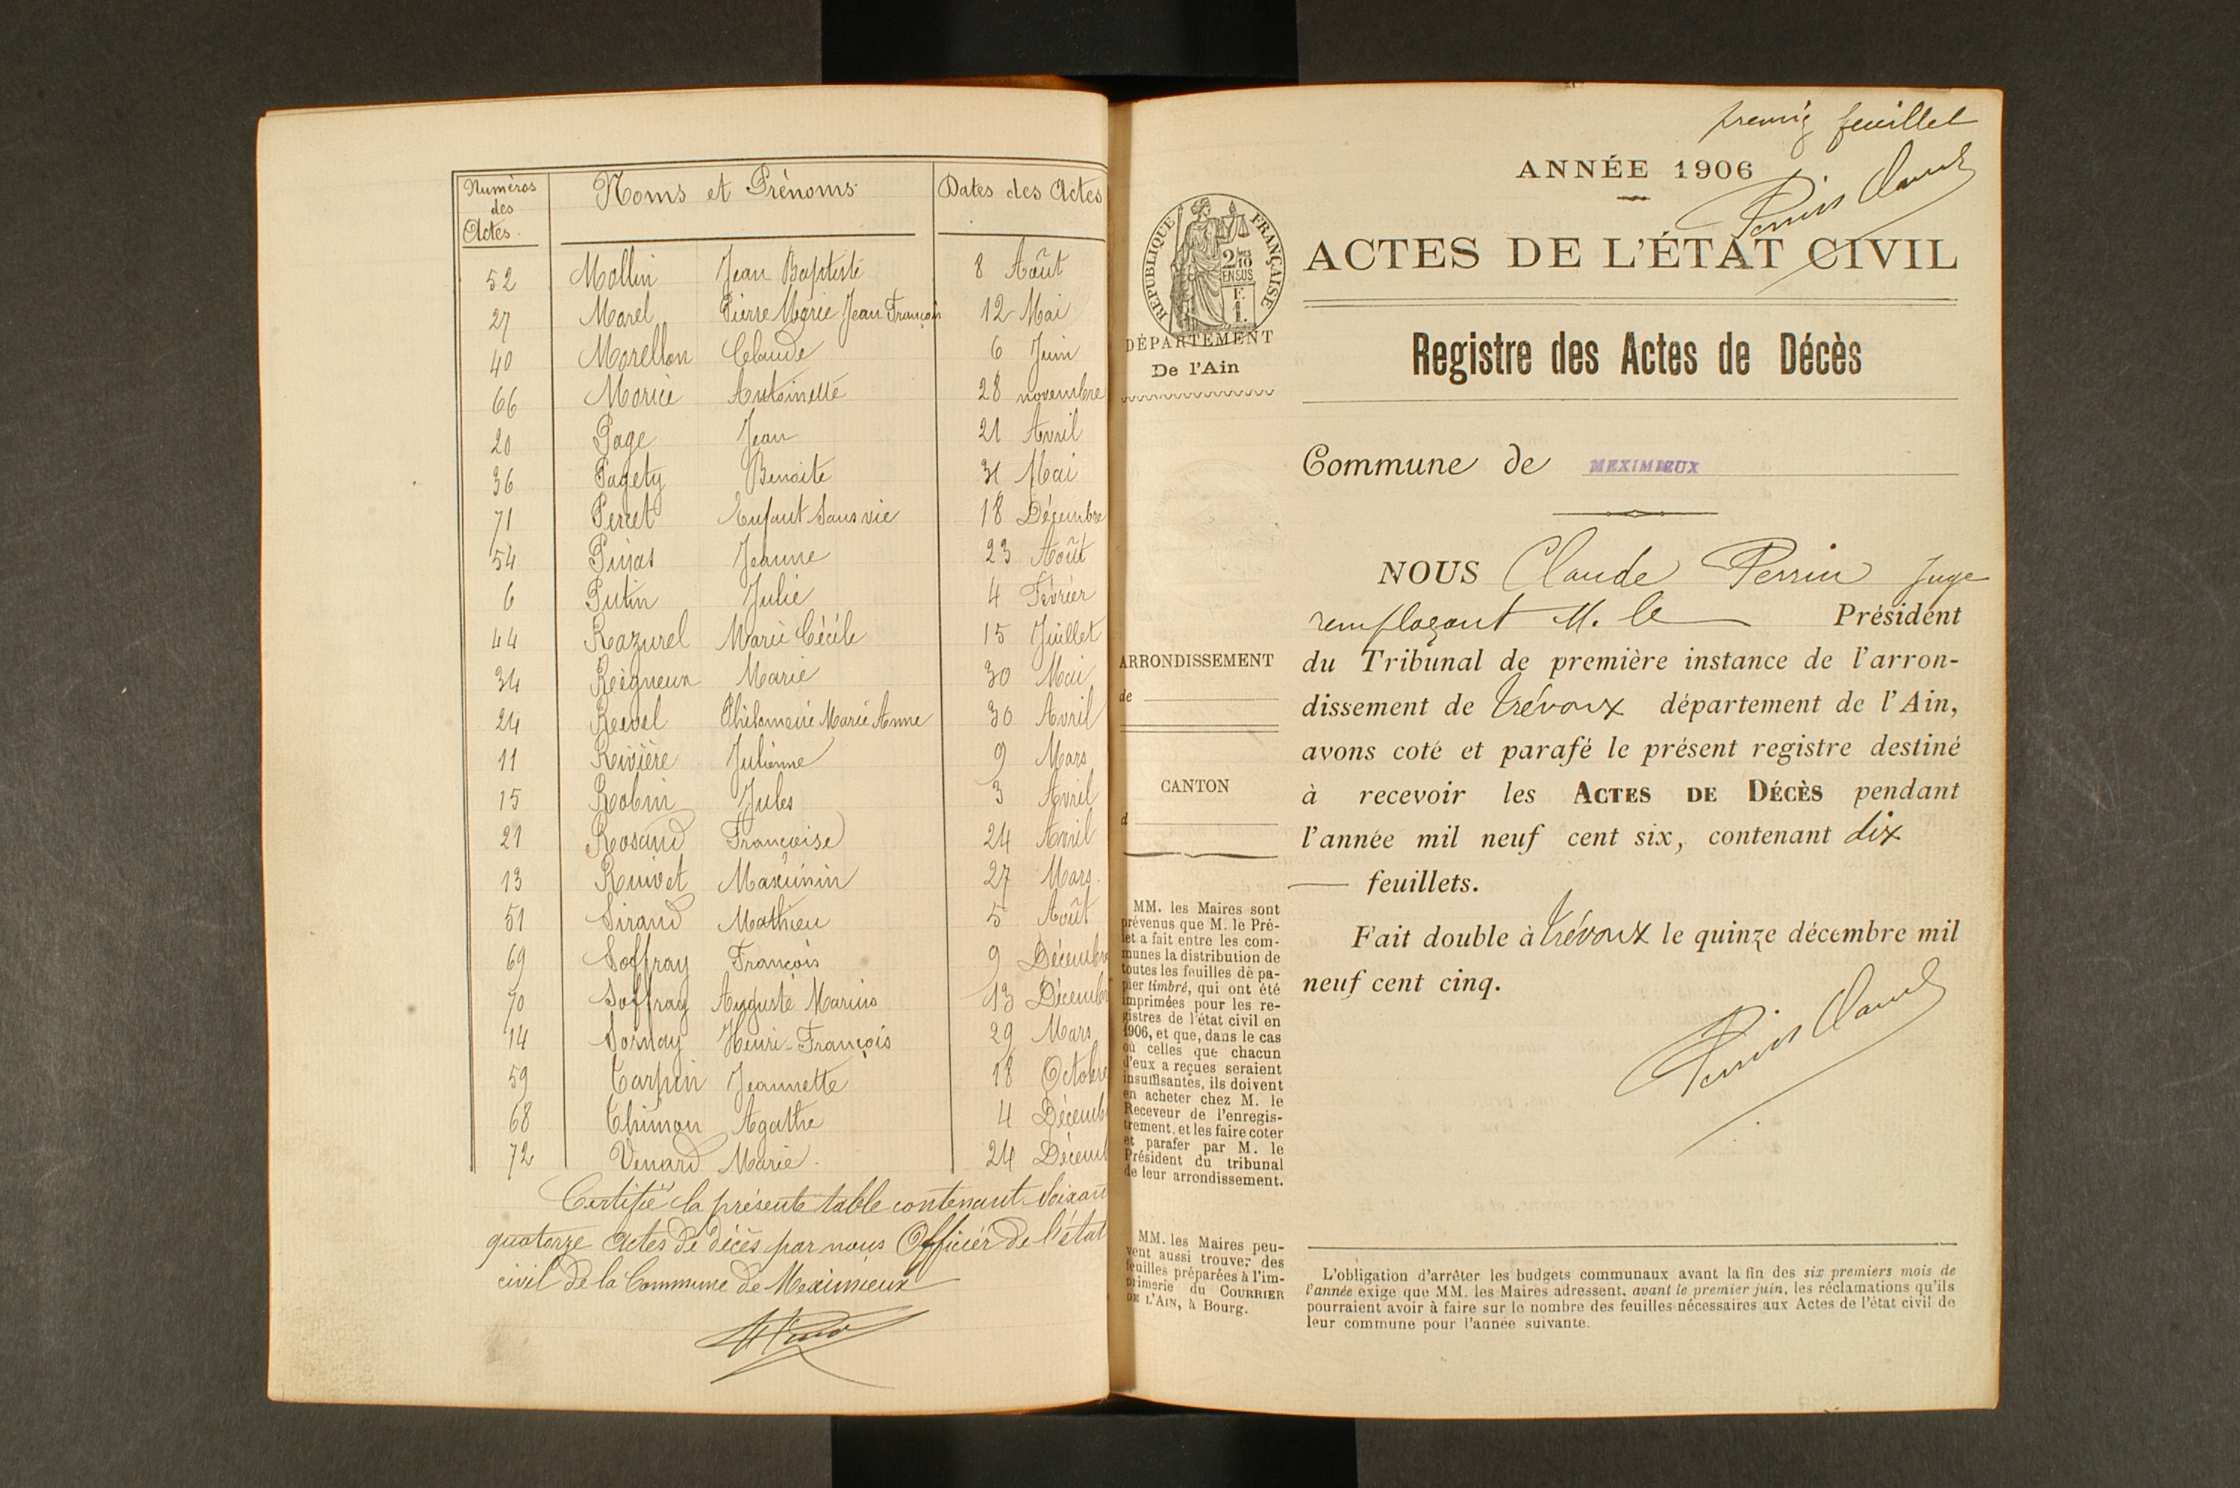 Numéros des Actes. Noms et Prénoms Dates des Actes
52 Mollin Jean Baptiste 8 Août
27 Morel Pierre Marie Jean François 12 Mai
40 Morellon Claude 6 Juin
66 Morice Antoinette 28 novembre
20 Page Jean 21 Avril
36 Pagety Benoite 31 Mai
71 Perret Enfant Sans vie 18 Décembre
54 Jeanne 23 Août
6 Putin Julie 4 Février
44 Razurel Marie Cécile 15 Juillet
34 Marie 30 Mai
24 Revel Marie Anne 30 Avril
11 Rivière Julienne 9 Mars
15 Robin Jules 3 Avril
21 Rosand Françoise 24 Avril
13 Ruivet Maximin 27 Mars.
51 Sirand Mathieu 5 Août
69 Soffray François 9 Décembre
70 Soffray Auguste Marius 13 Décembre
14 Sornay Henri-François 29 Mars
59 Carpin Jeannette 18 Octobre
68 Thimon Agathe 4 Décemb
72 Venard Marie. 24 Décemb
Certifié la présente table contenant Soixant
quatorze Actes de décès par nous Officier de l'état
civil de la Commune de Meximieux
premier feuillet
ANNÉE 1906
Perrin Claude
RÉPUBLIQUE FRANÇAISE
2 10
EN SUS
F.
1.
ACTES DE L'ÉTAT CIVIL
DÉPARTEMENT
De l'Ain
Registre des Actes de Décès
Commune de MEXIMIEUX
NOUS Claude Perrin Juge
remplaçant M. le Président
ARRONDISSEMENT
de
du Tribunal de première instance de l'arron-
dissement de Trévoux département de l'Ain,
avons coté et parafé le présent registre destiné
CANTON
d
à recevoir les ACTES DE DÉCÈS pendant
l'année mil neuf cent six, contenant dix
— feuillets.
Fait double à Trévoux le quinze décembre mil
neuf cent cinq.
Perrin Claude
MM. les Maires sont
prévenus que M. le Pré-
fet a fait entre les com-
munes la distribution de
toutes les feuilles de pa-
pier timbré, qui ont été
imprimées pour les re-
gistres de l'état civil en
1906, et que, dans le cas
où celles que chacun
d'eux a reçues seraient
insuffisantes, ils doivent
en acheter chez M. le
Receveur de l'enregis-
trement, et les faire coter
et parafer par M. le
Président du tribunal
de leur arrondissement.
MM. les Maires peu-
vent aussi trouver des
feuilles préparées à l'im-
primerie du COURRIER
DE L'AIN, à Bourg.
L'obligation d'arrêter les budgets communaux avant la fin des six premiers mois de
l'année exige que MM. les Maires adressent, avant le premier juin, les réclamations qu'ils
pourraient avoir à faire sur le nombre des feuilles nécessaires aux Actes de l'état civil de
leur commune pour l'année suivante.